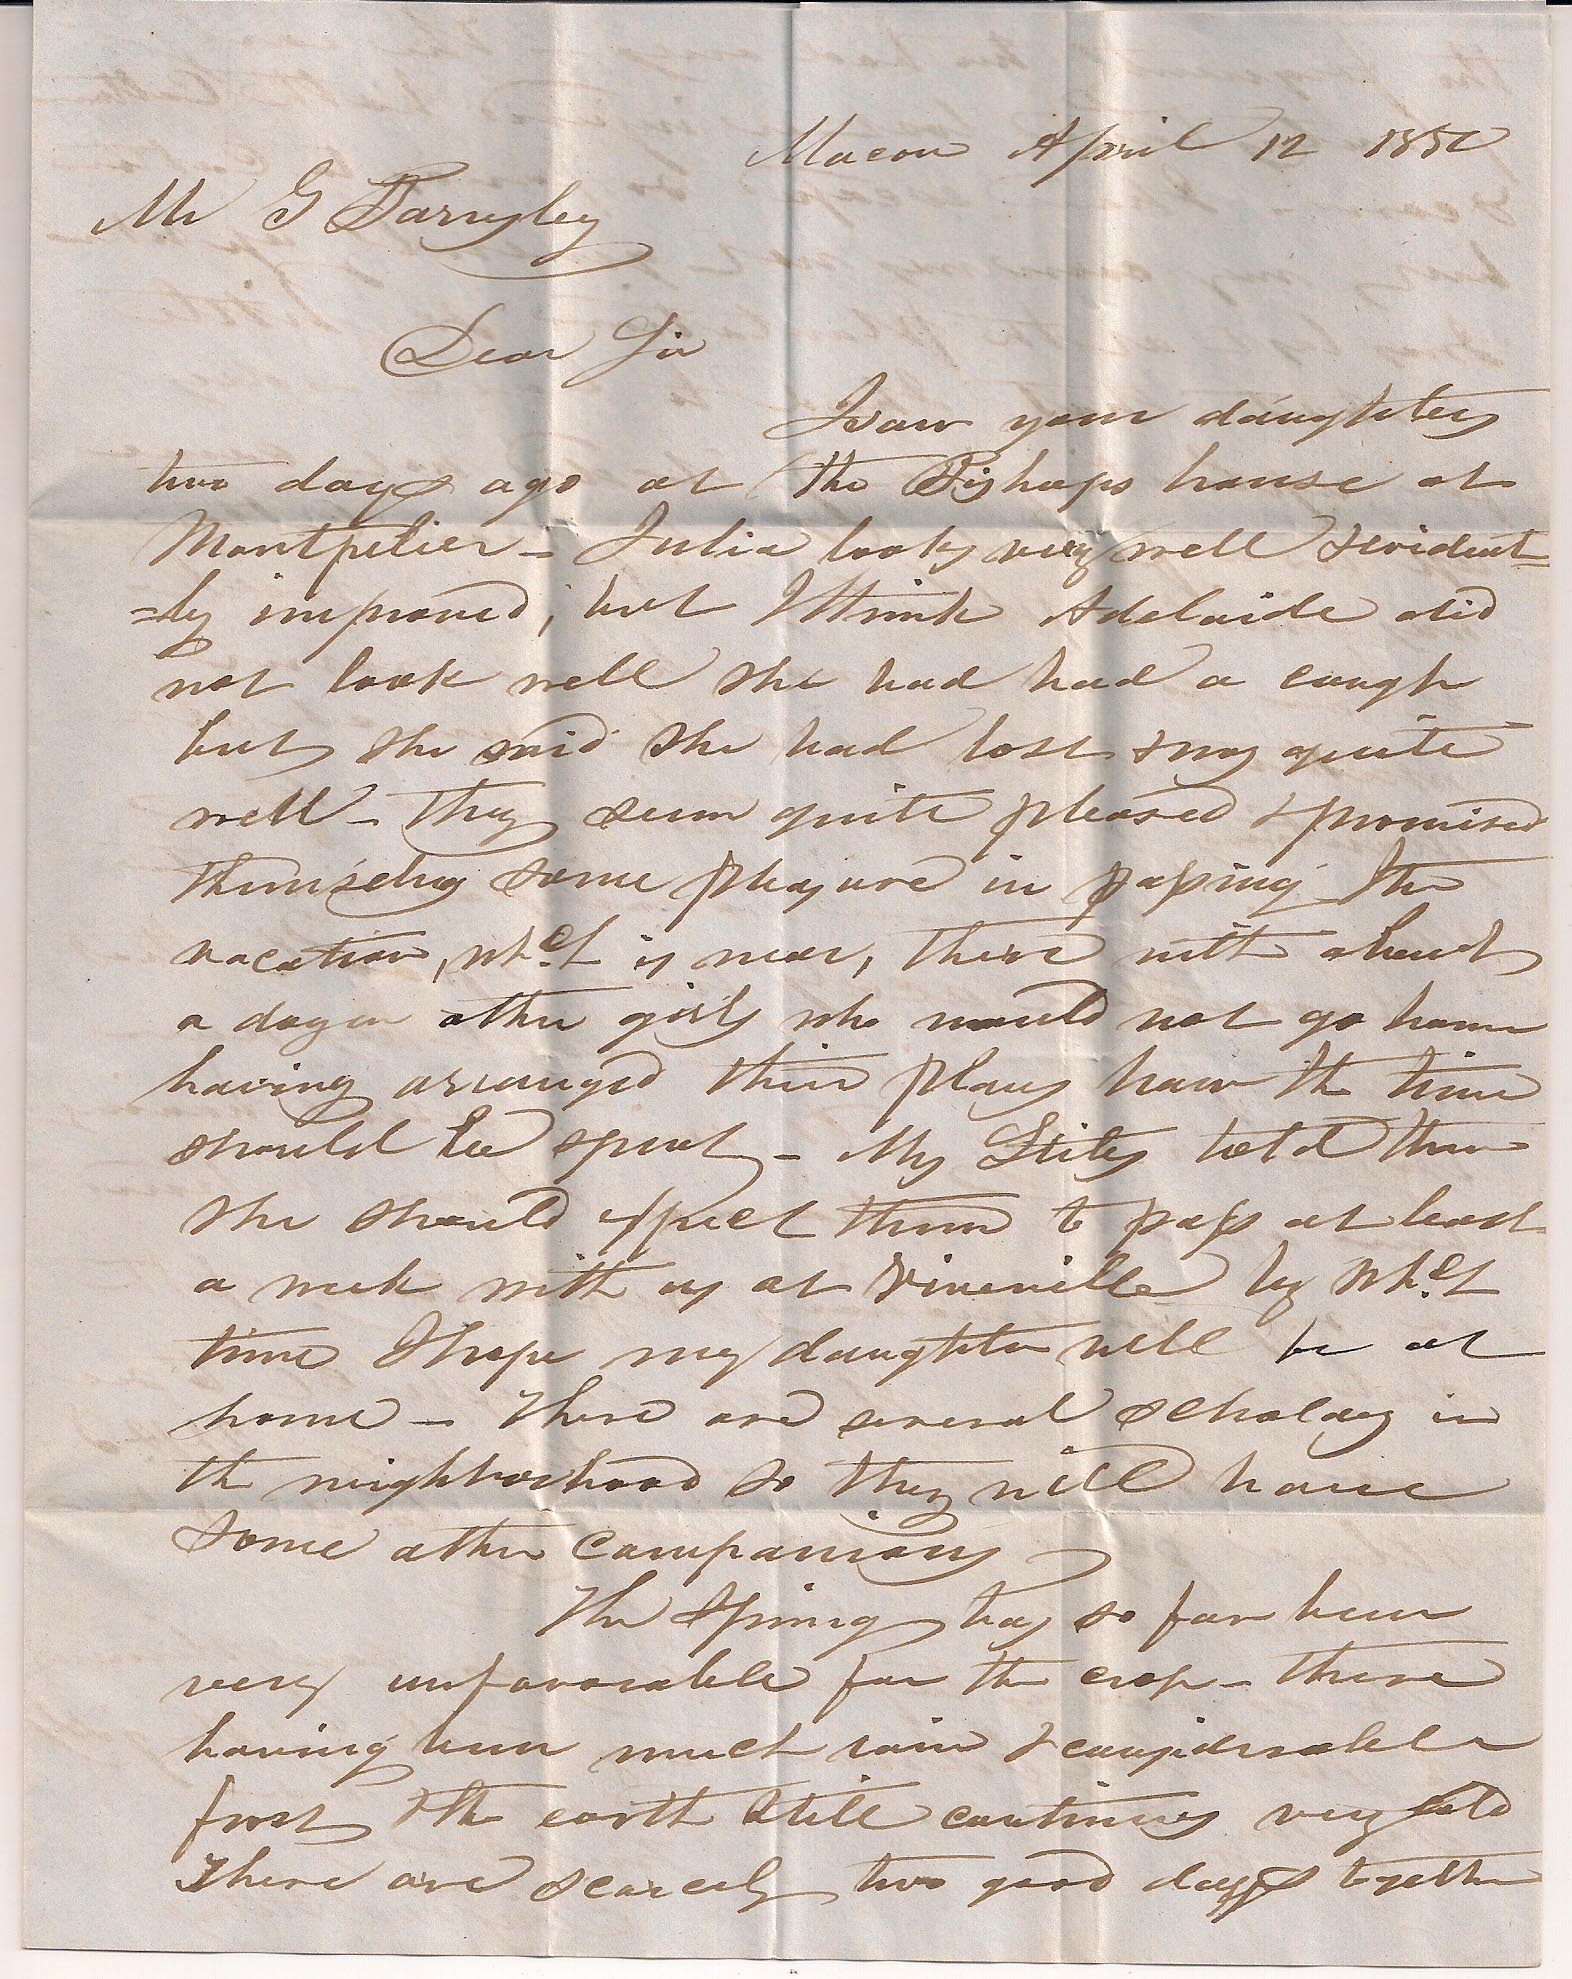 Macon April 12 1850
Mr G Barnsley
Dear Sir
I saw your daughters
two days ago at the Bishops house at
Montpelier – Julia looks very well & evident=
=ly improved, but I think Adelaide did
not look well she had had a cough
but she said she had lost & was quite
well – They seem quite pleased & promised
themselves some pleasure in passing the
vacation, whch is near, there with about
a dozen other girls who would not go home
having arranged their plans how the time
should be spent – Mrs Stiles told them
she should expect them to pass at least
a week with us at Vineville by whch
time I hope my daughter will be at
home – There are several scholars in
the neighborhood so they will have
some other companions
The Spring has so far been
very unfavorable for the crop – there
having been much rain & considerable
frost & the earth still continues very cold
There are scarcely two good days together